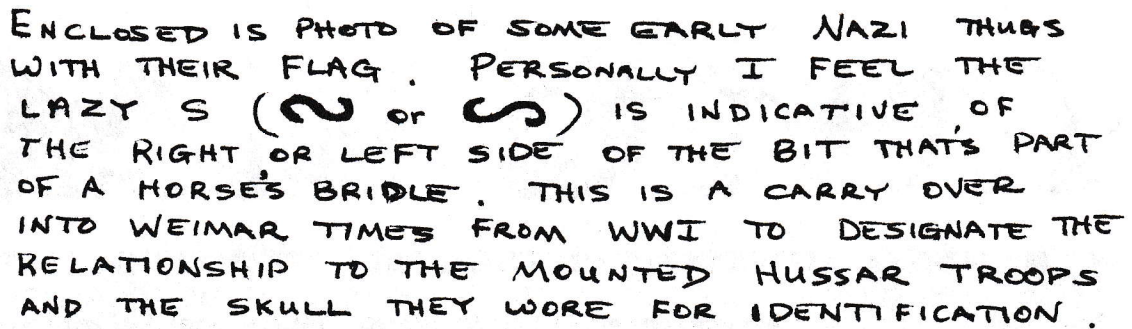 ENCLOSED IS PHOTO OF SOME EARLY NAZI THUGS
WITH THEIR FLAG. PERSONALLY I FEEL THE
LAZY S (∾ or ᔕ) IS INDICATIVE OF
THE RIGHT OR LEFT SIDE OF THE BIT THAT'S PART
OF A HORSE'S BRIDLE. THIS IS A CARRY OVER
INTO WEIMAR TIMES FROM WWI TO DESIGNATE THE
RELATIONSHIP TO THE MOUNTED HUSSAR TROOPS
AND THE SKULL THEY WORE FOR IDENTIFICATION.